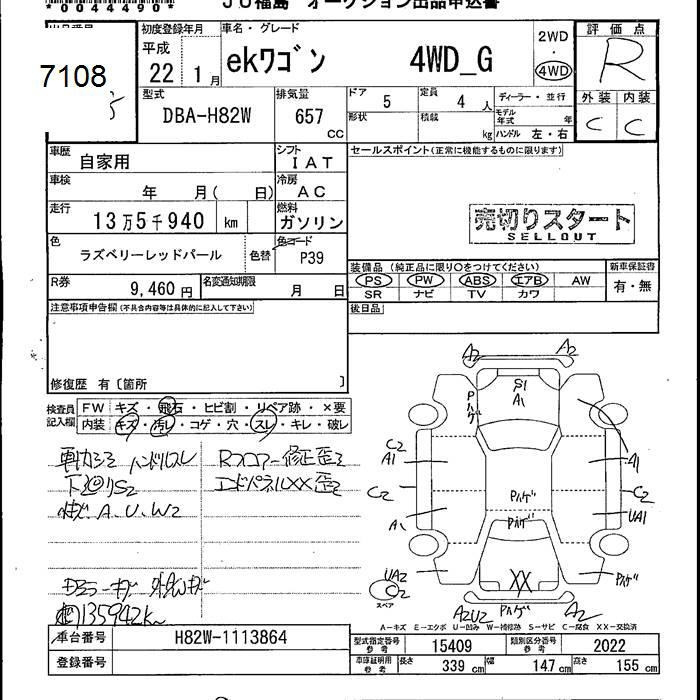 *0044490*
JU福島 オークション出品申込書
7108
初度登録年月
平成
22 1月
車名・グレード
ekワゴン 4WD_G
2WD
・
4WD
評価点
R
型式
DBA-H82W
排気量
657
CC
ドア 5
定員 4人
ディーラー・並行
形状
積載 kg
モデル年式 年
ハンドル 左・右
外装 内装
C C
車歴
自家用
シフト
IAT
セールスポイント(正常に機能するものに限ります)
車検
年 月( 日)
冷房
AC
走行
13万5千940 km
燃料
ガソリン
売切りスタート
SELLOUT
色
ラズベリーレッドパール
色替
色コード
P39
R券
9,460円
名変通知期限
月 日
装備品(純正品に限り○をつけてください)
PS PW ABS エアB AW
SR ナビ TV カワ
新車保証書
有・無
注意事項申告欄(不具合内容等は具体的に記入して下さい)
後日品
修復歴 有〔箇所 〕
検査員
記入欄
FW キズ・飛石・ヒビ割・リペア跡・×要
内装 キズ・汚レ・コゲ・穴・スレ・キレ・破レ
ハンドルスレ
Rフロアー修正歪2
下廻りS2
エンドパネルXX歪2
A、U、W2
135942km
A2
A2
S1
A1
Pハゲ
C2
A1
C2
A1
A1
C2
UA1
Pハゲ
Pハゲ
UA2
C2
スペア
XX
Pハゲ
A2U2
Pハゲ
A2
A-キズ E-エクボ U-凹み W-補修跡 S-サビ C-腐食 XX-交換済
車台番号
H82W-1113864
登録番号
型式指定番号
参考
15409
類別区分番号
参考
2022
車庫証明用
参考
長さ 339cm
幅 147cm
高さ 155cm